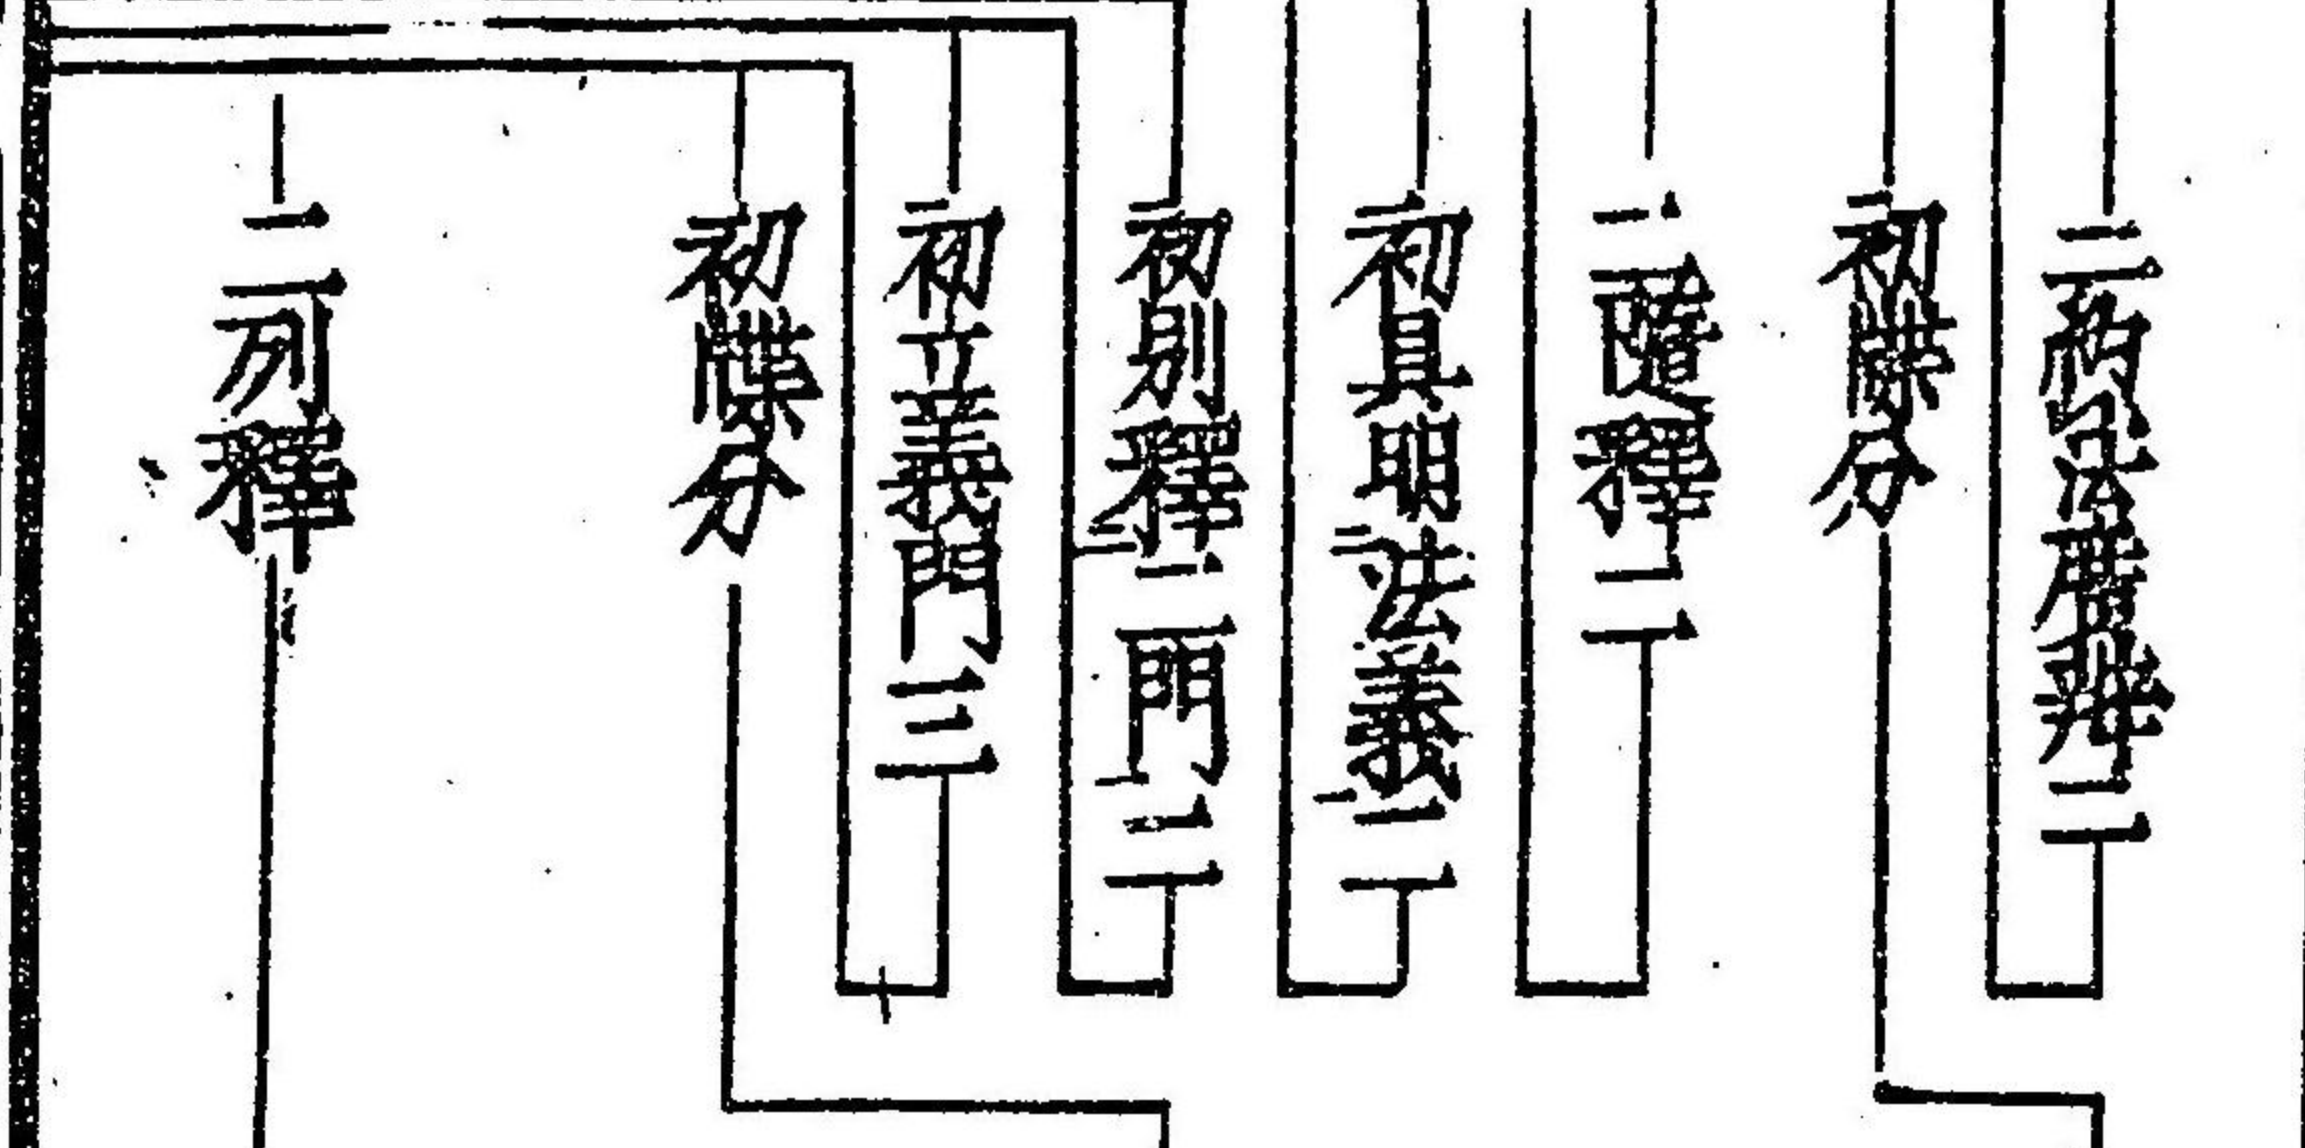 二約法廣辨二
初牒分
二隨釋二
初具明法義二
初別釋二門二
初立義門三
初牒分
二列釋